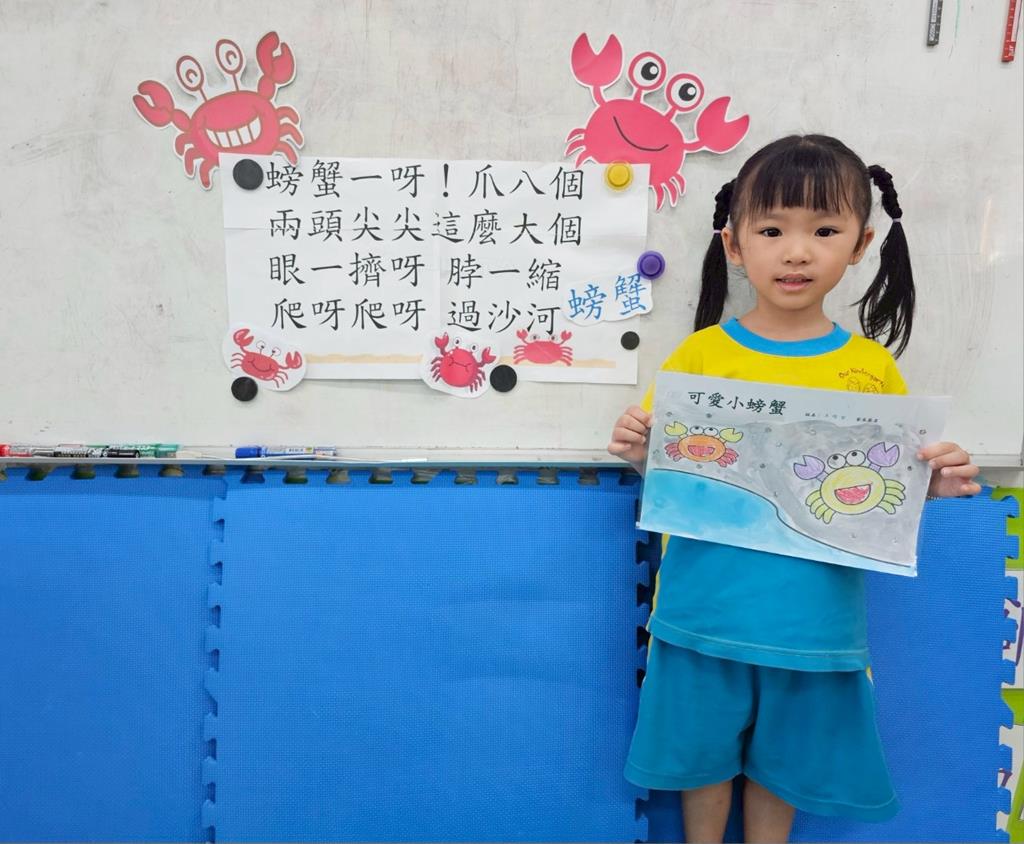 螃蟹一呀！爪八個
兩頭尖尖這麼大個
眼一擠呀 脖一縮
爬呀爬呀 過沙河
螃蟹
Our Kindergarten
可愛小螃蟹